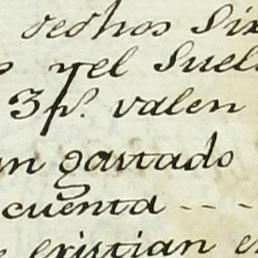 dedhos Six
y el Suel
3 ps. valen
gastado
cuenta ---
existian e